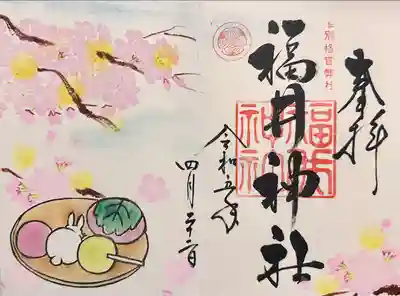 奉拝
別格官幣社
福井神社
福井神社
令和五年
四月二十